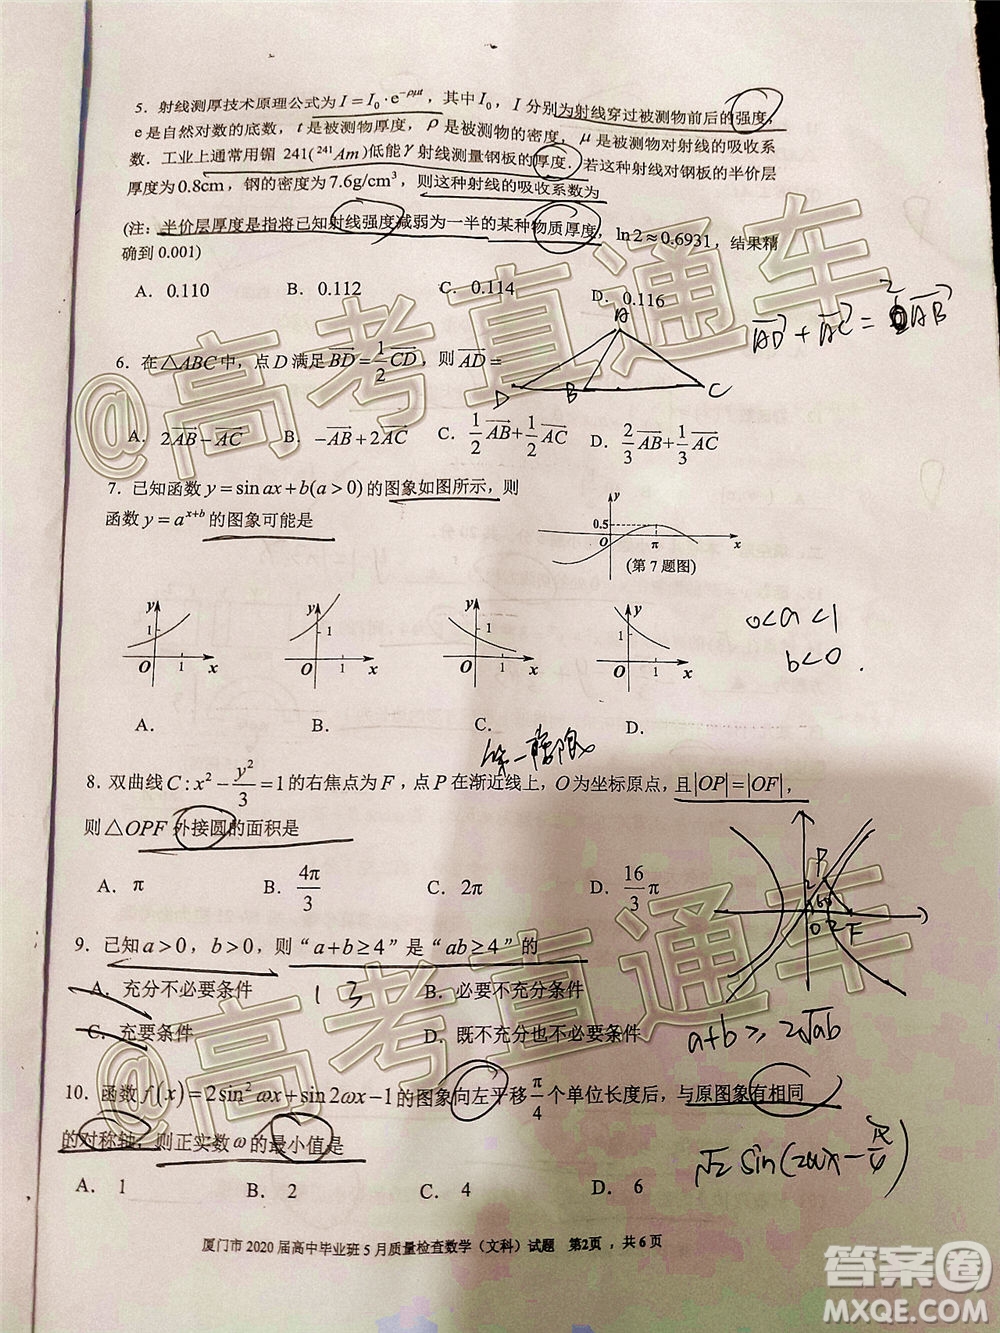 5. 射线测厚技术原理公式为 I = I₀·e^{-ρμt}，其中 I₀，I 分别为射线穿过被测物前后的强度，
e 是自然对数的底数，t 是被测物厚度，ρ 是被测物的密度，μ 是被测物对射线的吸收系
数．工业上通常用镅 241(²⁴¹Am)低能γ射线测量钢板的厚度．若这种射线对钢板的半价层
厚度为 0.8cm，钢的密度为 7.6g/cm³，则这种射线的吸收系数为
(注：半价层厚度是指将已知射线强度减弱为一半的某种物质厚度，ln2≈0.6931，结果精
确到 0.001)
A．0.110 B．0.112 C．0.114 D．0.116
AD + AC = 2AB
6. 在△ABC 中，点 D 满足 BD = 1/2 CD，则 AD =
A
D B C
A．2AB − AC B．−AB + 2AC C．1/2 AB + 1/2 AC D．2/3 AB + 1/3 AC
7．已知函数 y = sin ax + b(a > 0) 的图象如图所示，则
函数 y = a^{x+b} 的图象可能是
y 0.5 O π x
(第 7 题图)
y 1 O 1 x
y 1 O 1 x
y 1 O 1 x
y 1 O 1 x
0<a<1
b<0.
A. B. C. D.
第一象限
8. 双曲线 C : x² − y²/3 = 1 的右焦点为 F，点 P 在渐近线上，O 为坐标原点，且 |OP| = |OF|，
则 △OPF 外接圆的面积是
A．π B．4π/3 C．2π D．16/3 π
P 2 60 O 2 F
9．已知 a > 0，b > 0，则“a + b ≥ 4”是“ab ≥ 4”的
A．充分不必要条件 B．必要不充分条件
1 3
C．充要条件 D．既不充分也不必要条件
a+b ≥ 2√ab
10．函数 f(x) = 2sin²ωx + sin 2ωx − 1 的图象向左平移 π/4 个单位长度后，与原图象有相同
的对称轴，则正实数 ω 的最小值是
√2 sin(2ωx − π/4)
A．1 B．2 C．4 D．6
厦门市 2020 届高中毕业班 5 月质量检查数学（文科）试题 第2页，共 6 页
@高考直通车
@高考直通车
答案圈
MXQE.COM